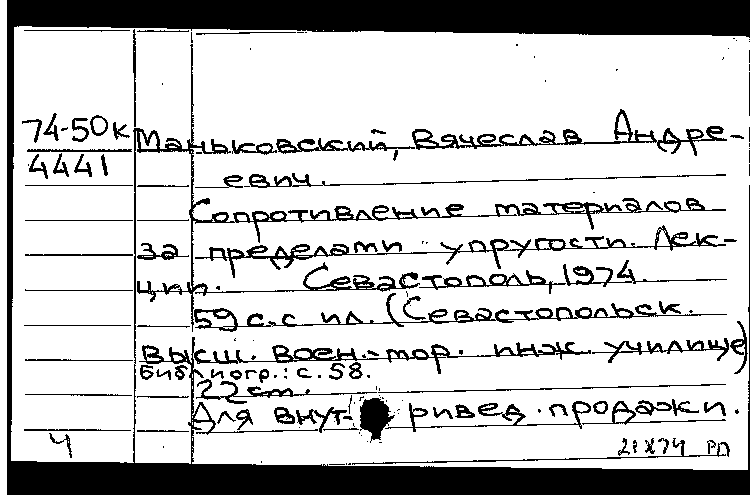 74-50к Маньковский, Вячеслав Андре-
4441
евич.
Сопротивление материалов
за пределами упругости. Лек-
ции. Севастополь, 1974.
59 с. с ил. (Севастопольск.
высш. воен.-мор. инж. училище)
Библиогр.: с. 58.
22 см.
Для внут- ривед. продажи.
4 21 X 74 РП